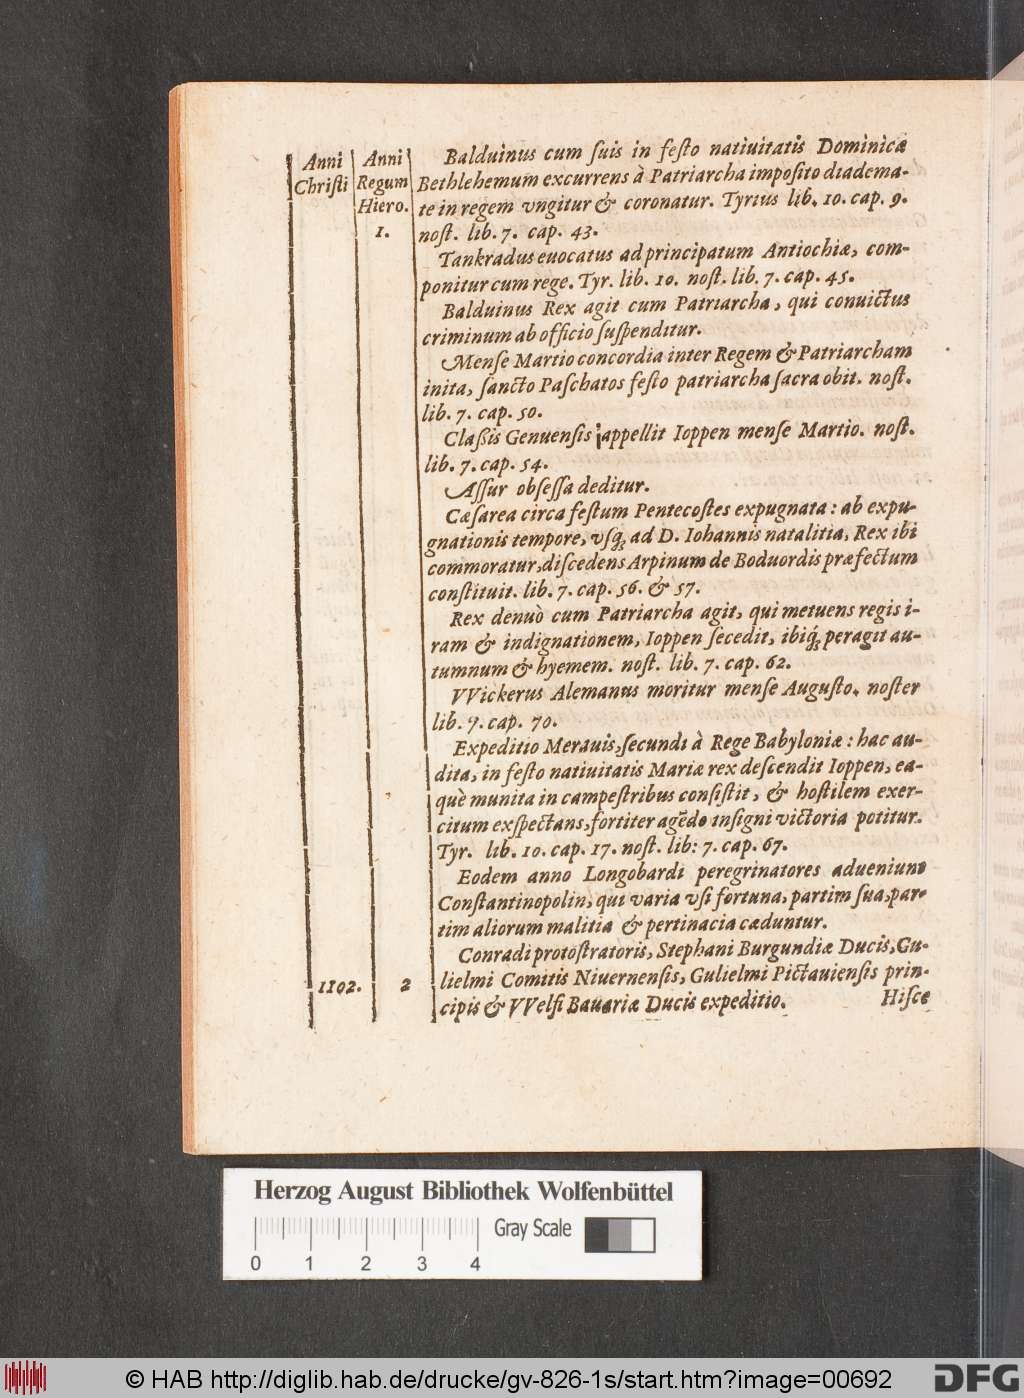 Anni Christi
Anni Regum Hiero.
1.
Balduinus cum ſuis in feſto natiuitatis Dominicæ
Bethlehemum excurrens à Patriarcha impoſito diadema-
te in regem vngitur & coronatur. Tyrius lib. 10. cap. 9.
noſt. lib. 7. cap. 43.
Tankradus euocatus ad principatum Antiochiæ, com-
ponitur cum rege. Tyr. lib. 10. noſt. lib. 7. cap. 45.
Balduinus Rex agit cum Patriarcha, qui conuictus
criminum ab officio ſuſpenditur.
Menſe Martio concordia inter Regem & Patriarcham
inita, ſancto Paſchatos feſto patriarcha ſacra obit. noſt.
lib. 7. cap. 50.
Claßis Genuenſis appellit Ioppen menſe Martio. noſt.
lib. 7. cap. 54.
Aſſur obſeſſa deditur.
Cæſarea circa feſtum Pentecoſtes expugnata: ab expu-
gnationis tempore, vſq; ad D. Iohannis natalitia, Rex ibi
commoratur, diſcedens Arpinum de Boduordis præfectum
conſtituit. lib. 7. cap. 56. & 57.
Rex denuò cum Patriarcha agit, qui metuens regis i-
ram & indignationem, Ioppen ſecedit, ibiq́; peragit au-
tumnum & hyemem. noſt. lib. 7. cap. 62.
VVickerus Alemanus moritur menſe Auguſto. noſter
lib. 7. cap. 70.
Expeditio Merauis, ſecundi à Rege Babyloniæ: hac au-
dita, in feſto natiuitatis Mariæ rex deſcendit Ioppen, ea-
què munita in campeſtribus conſiſtit, & hoſtilem exer-
citum exſpectans, fortiter agẽdo inſigni victoria potitur.
Tyr. lib. 10. cap. 17. noſt. lib: 7. cap. 67.
Eodem anno Longobardi peregrinatores adueniunt
Conſtantinopolin, qui varia vſi fortuna, partim ſua, par-
tim aliorum malitia & pertinacia cæduntur.
Conradi protoſtratoris, Stephani Burgundiæ Ducis, Gu-
1102. 2 lielmi Comitis Niuernenſis, Gulielmi Pictauienſis prin-
cipis & VVelfi Bauariæ Ducis expeditio. Hiſce
Herzog August Bibliothek Wolfenbüttel
Gray Scale
0 1 2 3 4
© HAB http://diglib.hab.de/drucke/gv-826-1s/start.htm?image=00692
DFG